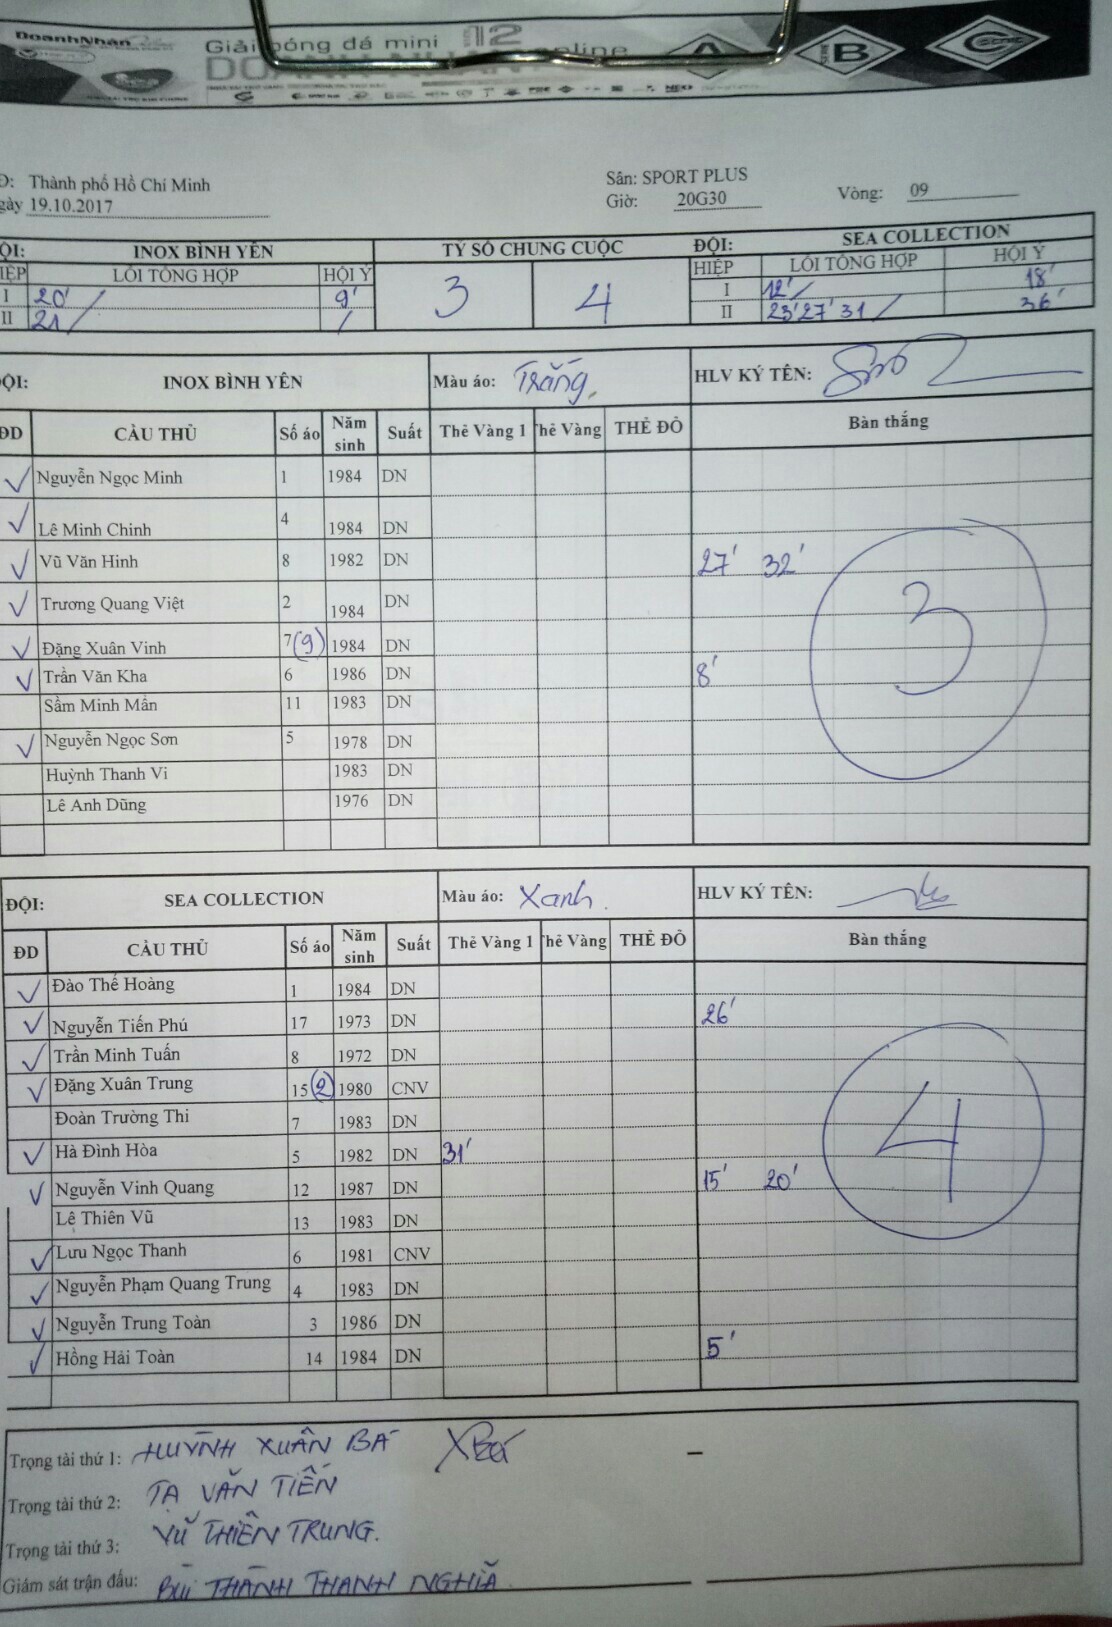 DoanhNhân
Giải bóng đá mini 12
A B
Thành phố Hồ Chí Minh Sân: SPORT PLUS
19.10.2017 Giờ: 20G30 Vòng: 09
INOX BÌNH YÊN TỶ SỐ CHUNG CUỘC ĐỘI: SEA COLLECTION
LỖI TỔNG HỢP HỘI Ý 3 4 HIỆP LỖI TỔNG HỢP HỘI Ý
I 20' / 9' I 12' / 18'
II 21 / / II 23' 27' 31 / 36'
INOX BÌNH YÊN Màu áo: Trắng. HLV KÝ TÊN:
CẦU THỦ Số áo Năm sinh Suất Thẻ Vàng 1 Thẻ Vàng THẺ ĐỎ Bàn thắng
Nguyễn Ngọc Minh 1 1984 DN
Lê Minh Chinh 4 1984 DN
Vũ Văn Hinh 8 1982 DN 27' 32'
Trương Quang Việt 2 1984 DN
Đặng Xuân Vinh 7 (9) 1984 DN
Trần Văn Kha 6 1986 DN 8'
Sầm Minh Mẩn 11 1983 DN
Nguyễn Ngọc Sơn 5 1978 DN
Huỳnh Thanh Vi 1983 DN
Lê Anh Dũng 1976 DN
3
ĐỘI: SEA COLLECTION Màu áo: Xanh. HLV KÝ TÊN:
ĐD CẦU THỦ Số áo Năm sinh Suất Thẻ Vàng 1 Thẻ Vàng THẺ ĐỎ Bàn thắng
Đào Thế Hoàng 1 1984 DN
Nguyễn Tiến Phú 17 1973 DN 26'
Trần Minh Tuấn 8 1972 DN
Đặng Xuân Trung 15 (2) 1980 CNV
Đoàn Trường Thi 7 1983 DN
Hà Đình Hòa 5 1982 DN 31'
Nguyễn Vinh Quang 12 1987 DN 15' 20'
Lê Thiên Vũ 13 1983 DN
Lưu Ngọc Thanh 6 1981 CNV
Nguyễn Phạm Quang Trung 4 1983 DN
Nguyễn Trung Toàn 3 1986 DN
Hồng Hải Toàn 14 1984 DN 5'
4
Trọng tài thứ 1: HUỲNH XUÂN BÁ XBá
Trọng tài thứ 2: TẠ VĂN TIẾN
Trọng tài thứ 3: VŨ THIÊN TRUNG.
Giám sát trận đấu: BÙI THÀNH THANH NGHĨA